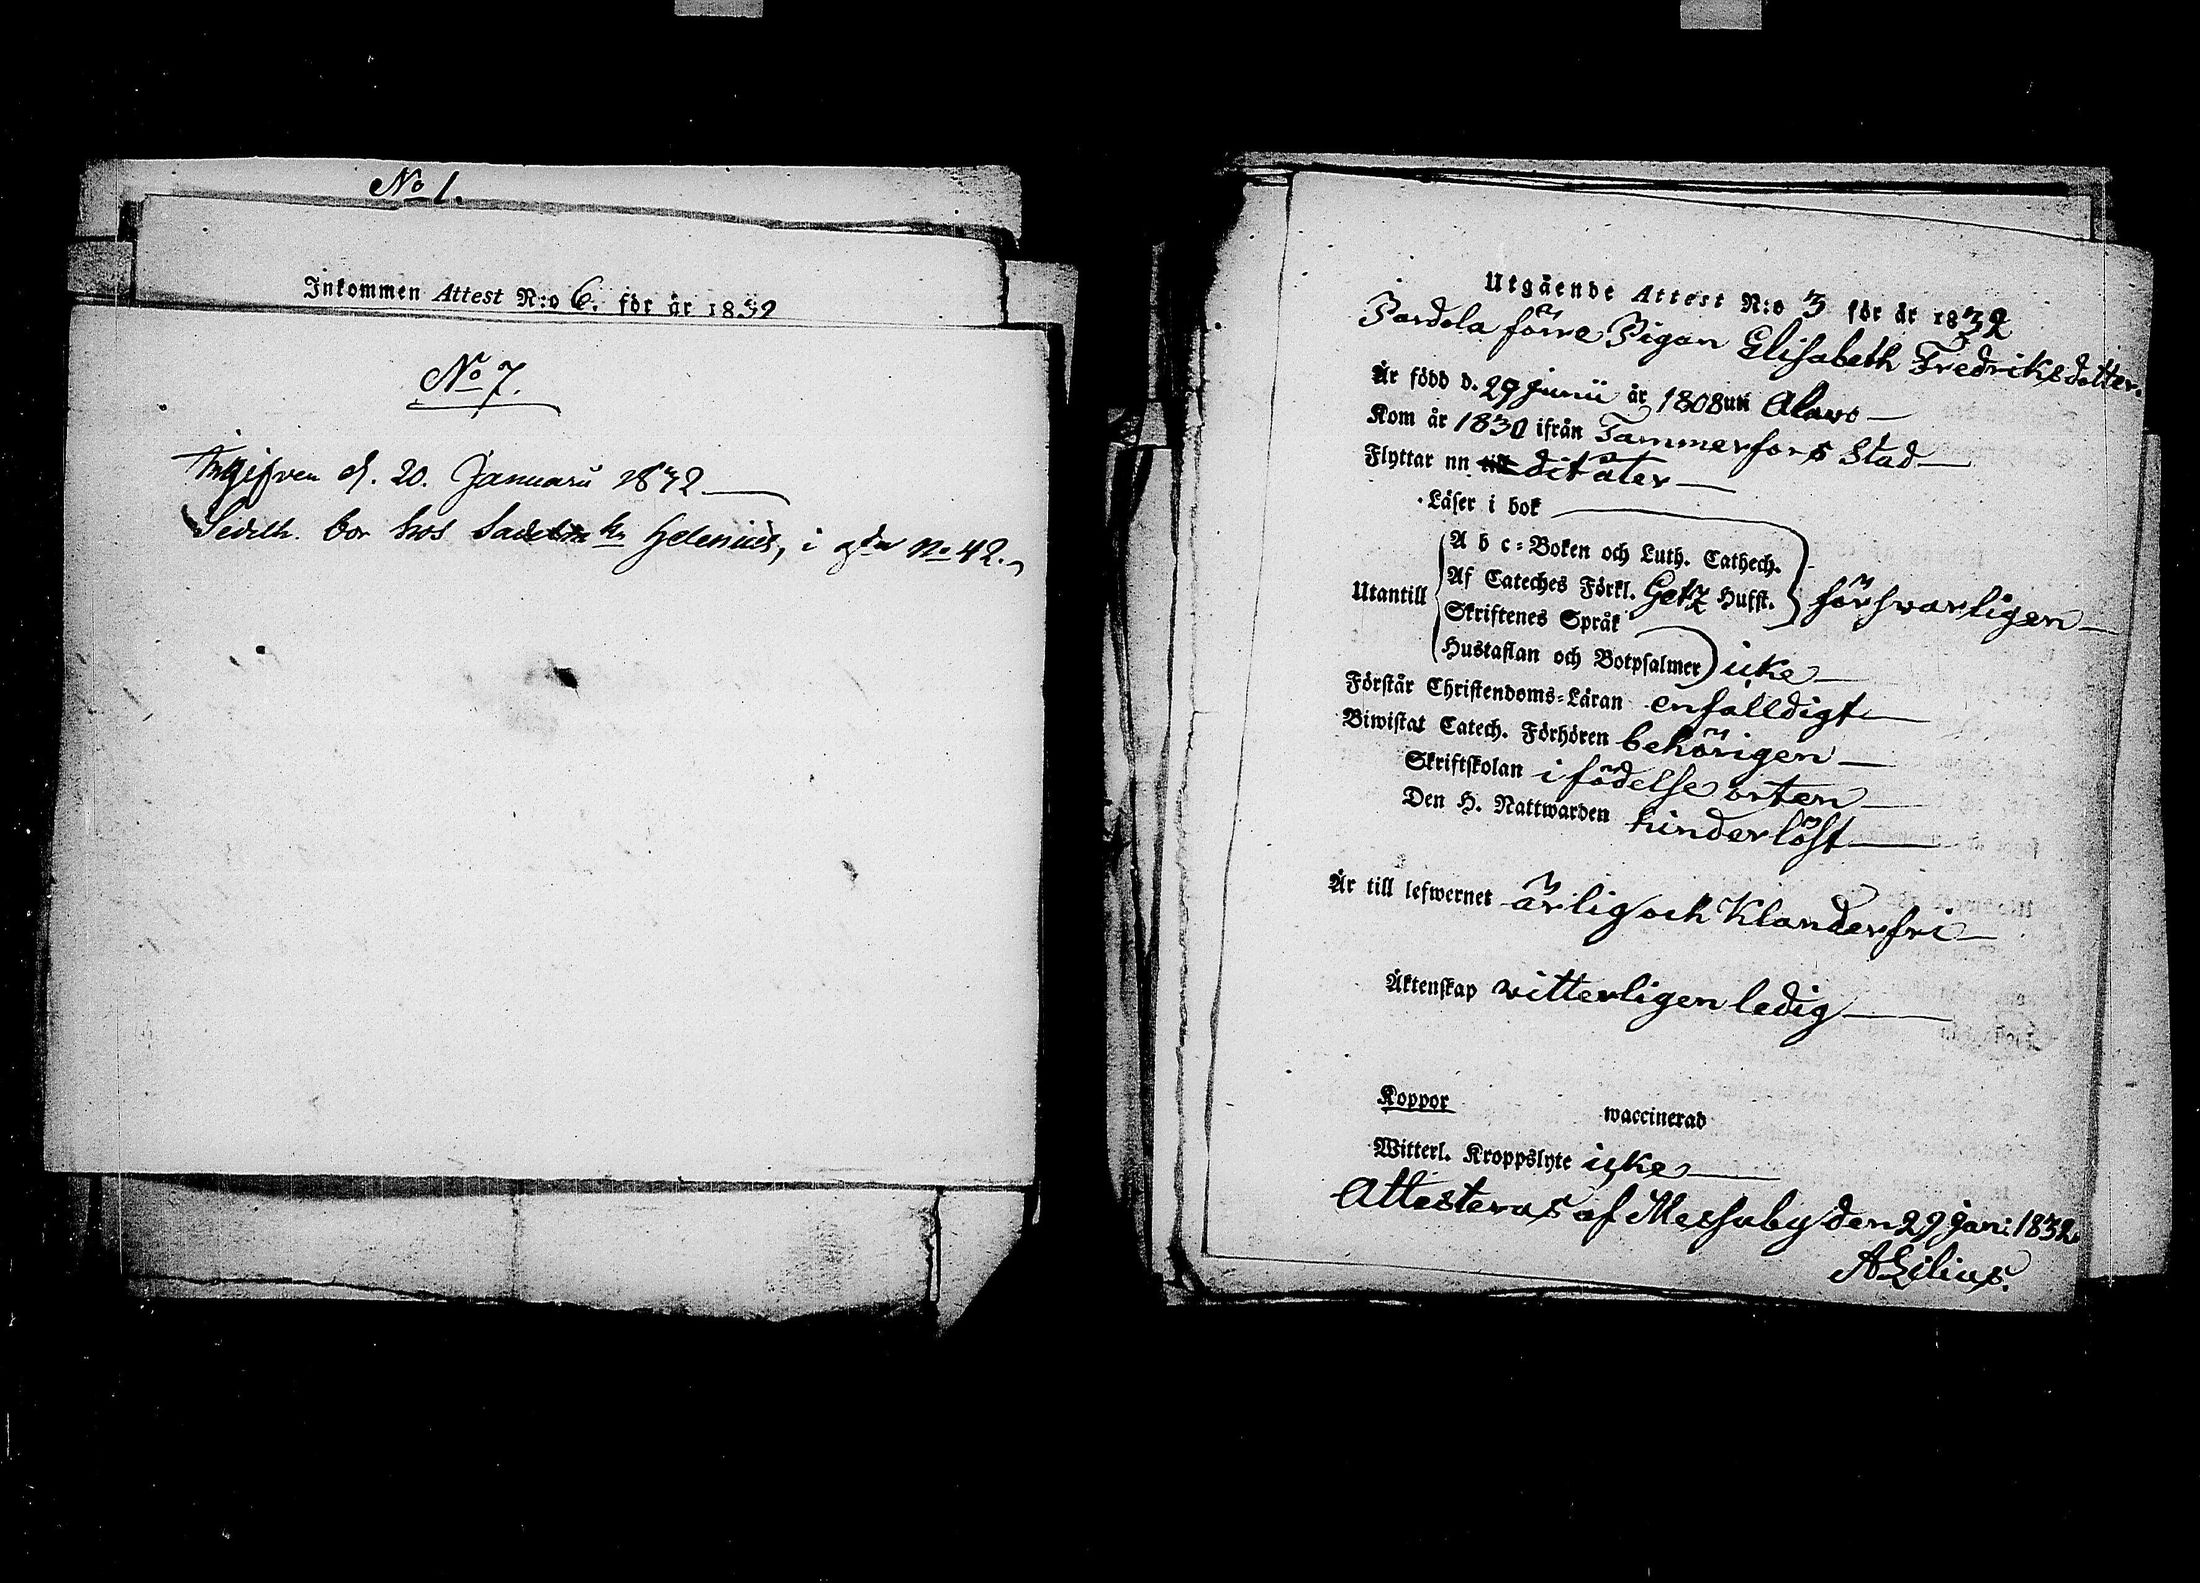 No 1.
Inkommen Attest N:o 6. för år 1832
No 7.
Ingifven d. 20. Januarii 1832
Sedelh. bor hos Sadelm Helenius, i gdn No 42.
Utgående Attest N:o 3 för år 1832
Pardola förre Pigan Elisabeth Fredriksdotter.
Är född d. 29 Junii år 1808 uti Alavo
Kom år 1830 ifrån Tammerfors Stad
Flyttar nu till dit åter
Läser i bok
A b c-Boken och Luth. Cathech.
Utantill Af Cateches Förkl. Getz Hufst. försvarligen
Skriftenes Språk
Hustaflan och Botpsalmer icke
Förstår Christendoms-Läran enfalldigt
Biwistat Catech. Förhören behörigen
Skriftskolan i födelse orten
Den H. Nattwarden hinderlöst
Är till lefwernet ärlig och Klanderfri
Äktenskap vitterligen ledig
Koppor waccinerad
Witterl. Kroppslyte icke
Attesteras af Messuby den 29 Jan: 1832.
A Lilius.